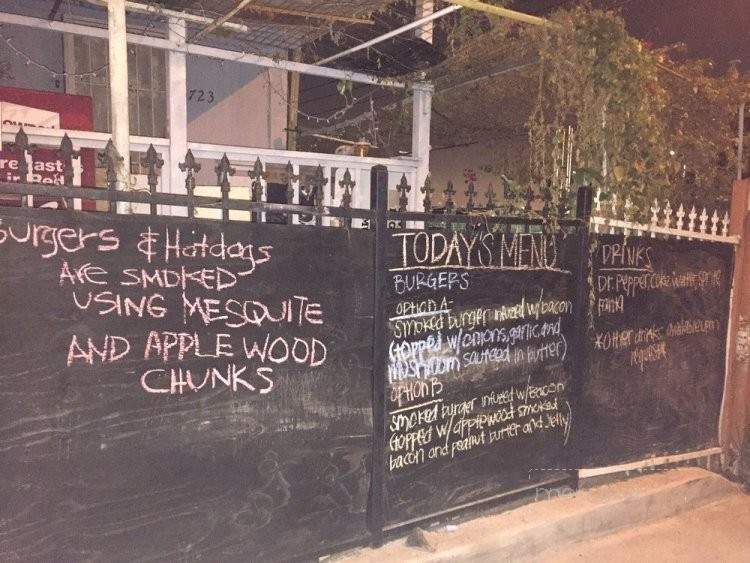 723
Burgers & Hotdogs
ARE SMOKED
USING MESQUITE
AND APPLE WOOD
CHUNKS
TODAY'S MENU
BURGERS
OPTION A-
smoked burger infused w/ bacon
(topped w/ onions, garlic, and
mushroom sauteed in butter)
OPTION B
smoked burger infused w/ bacon
(topped w/ applewood smoked
bacon and peanut butter and jelly)
DRINKS
Dr. Pepper, Coke, water, Sprite
Fanta
*Other drinks available upon
request